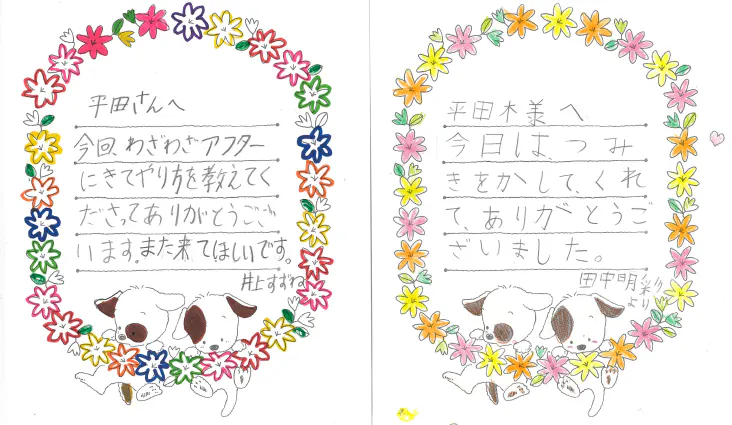 平田さんへ
今回、わざわざアフター
にきてやり方を教えてく
ださってありがとうござ
います。また来てほしいです。
井上すずね
平田木様へ
今日は、つみ
きをかして、くれ
て、ありがとうご
ざいました。
田中明彩
より